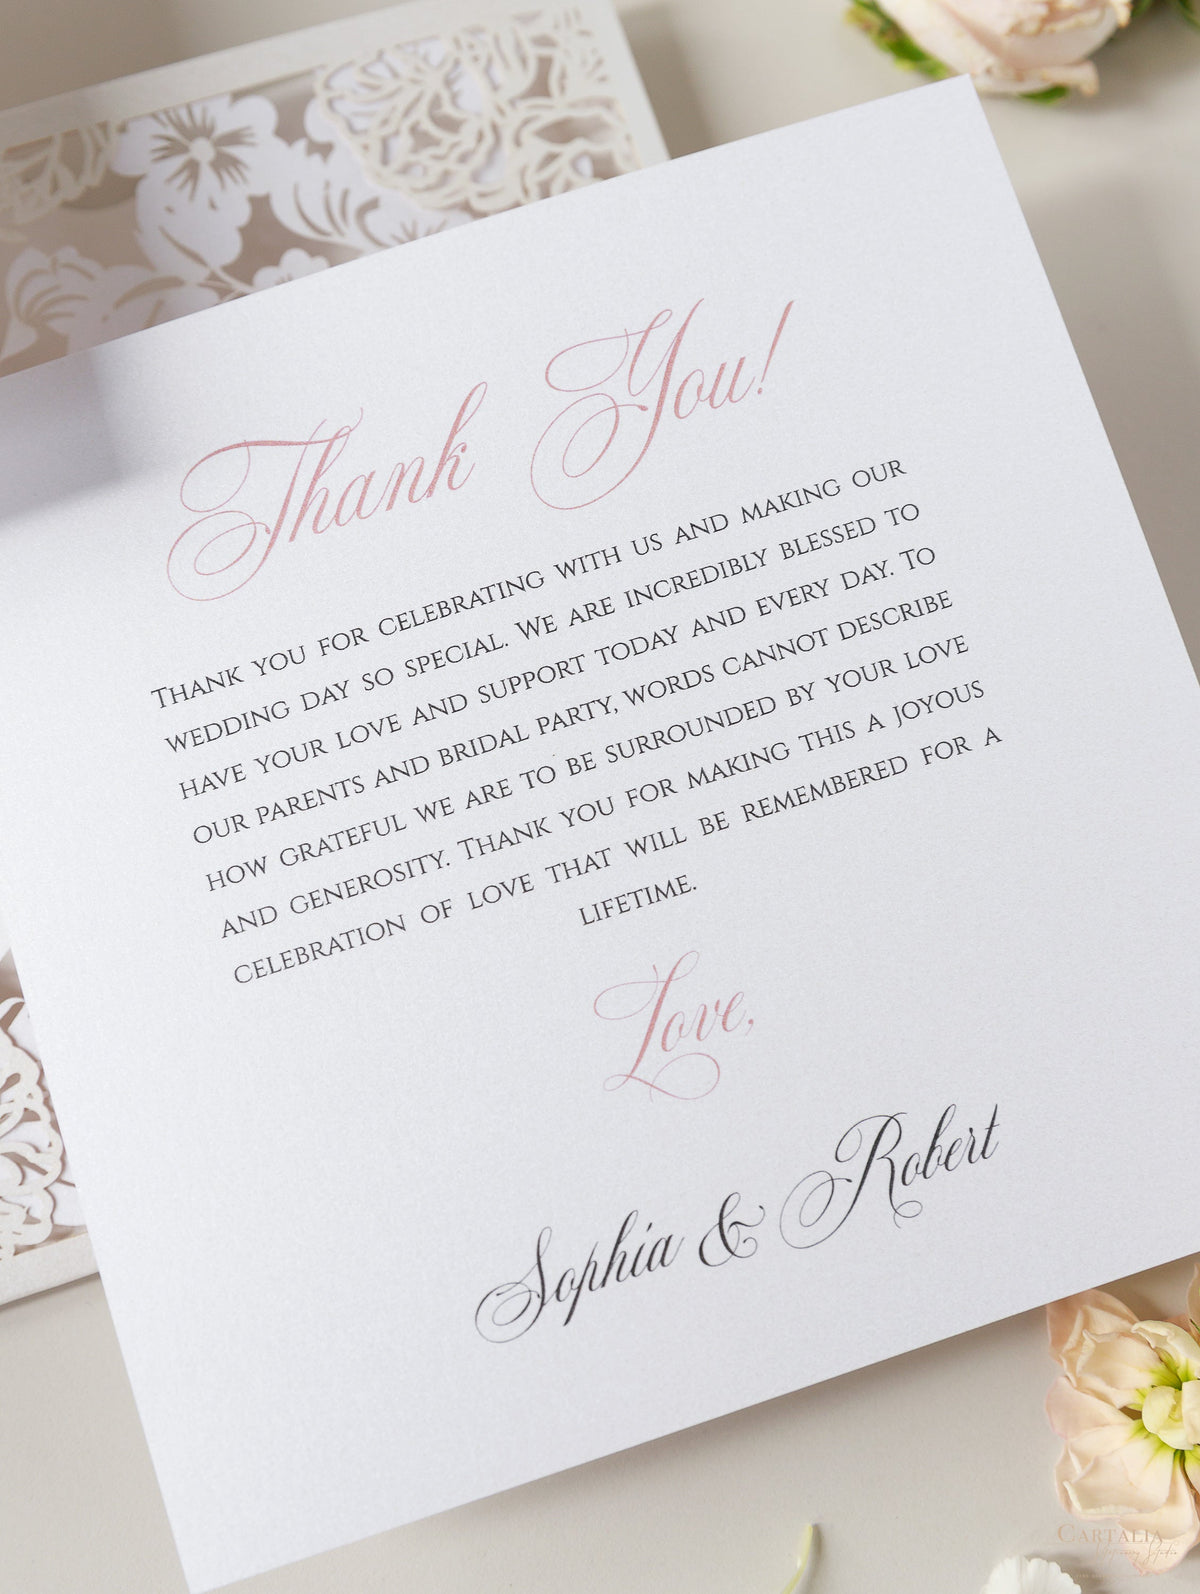 Thank You!
Thank you for celebrating with us and making our
wedding day so special. We are incredibly blessed to
have your love and support today and every day. To
our parents and bridal party, words cannot describe
how grateful we are to be surrounded by your love
and generosity. Thank you for making this a joyous
celebration of love that will be remembered for a
lifetime.
Love,
Sophia & Robert
CARTALIA